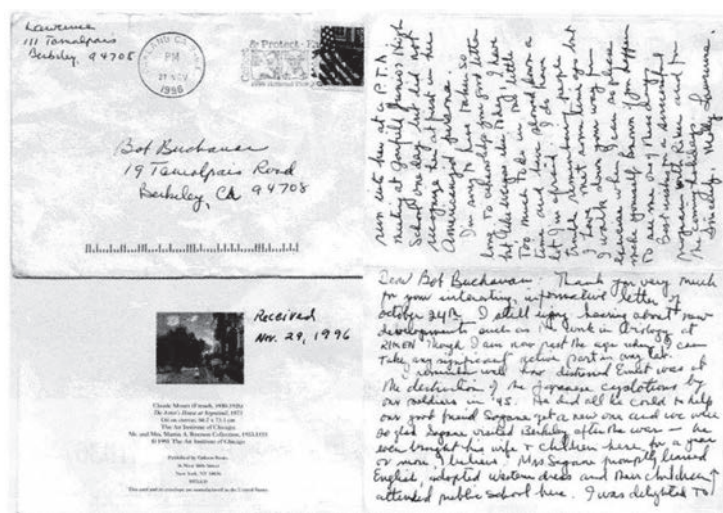 Lawrence
111 Tamalpais
Berkeley, 94708
PM
21 NOV
1996
& Protect
Bob Buchanan
19 Tamalpais Road
Berkeley, CA 94708
Received
Nov. 29, 1996
Claude Monet (French, 1840-1926)
The Artist's House at Argenteuil, 1873
The Art Institute of Chicago
Mr. and Mrs. Martin A. Ryerson Collection, 1933.1153
The Art Institute of Chicago
New York, NY
This card and its envelope are manufactured in the United States.
Dear Bob Buchanan: Thank you very much
for your interesting, informative letter of
October 24th. I still enjoy hearing about new
developments such as the work in Biology at
RIKEN though I am now past the age when I can
take any significant active part in any lab.
I remember well how distressed Ernest was at
the destruction of the Japanese cyclotrons by
our soldiers in '45. He did all he could to help
our good friend Sagane get a new one and we were
so glad Sagane visited Berkeley after the war — he
even brought his wife & children here for a year
or more, I believe. Mrs Sagane promptly learned
English, adopted western dress and their children
attended public school here. I was delighted to
run into her at a P.T.A
meeting at Garfield Junior High
School one day but did not
recognize her at first in her
Americanized persona.
I'm sorry to have taken so
long to acknowledge your good letter
but, like everyone else today, I have
too much to do in too little
time and have slowed down a
lot I'm afraid. I do have
trouble remembering people but
I have met some time you but
I walk down your way for
exercise when I can so please
make yourself known if you happen
to see me one of these days.
Best wishes for a successful
program with Riken and for
the coming holidays.
Sincerely, Molly Lawrence.